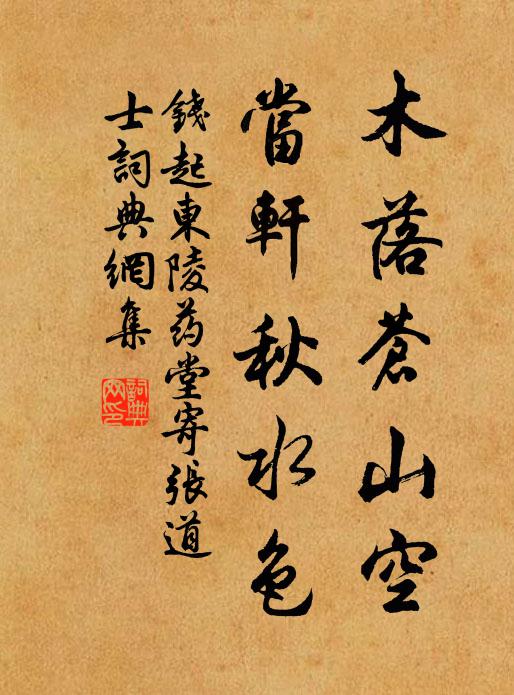 木落蒼山空
當軒秋水色
錢起東陵药堂寄張道
士詞典網集
詞典網印